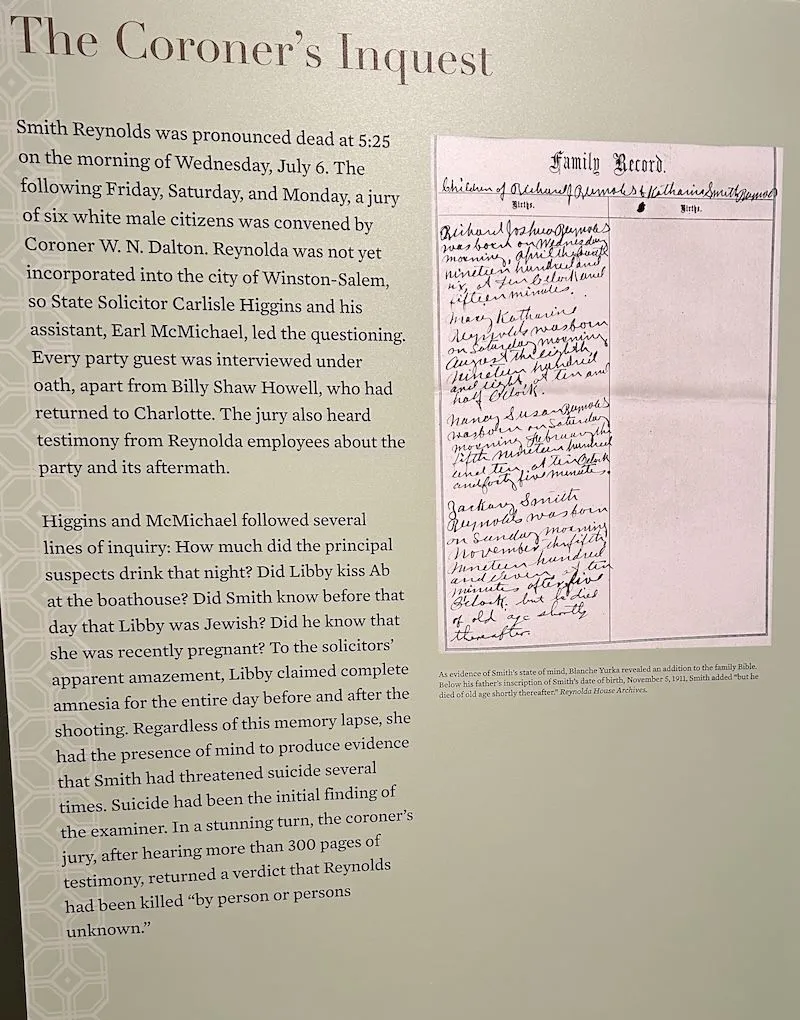 The Coroner's Inquest
Smith Reynolds was pronounced dead at 5:25
on the morning of Wednesday, July 6. The
following Friday, Saturday, and Monday, a jury
of six white male citizens was convened by
Coroner W. N. Dalton. Reynolda was not yet
incorporated into the city of Winston-Salem,
so State Solicitor Carlisle Higgins and his
assistant, Earl McMichael, led the questioning.
Every party guest was interviewed under
oath, apart from Billy Shaw Howell, who had
returned to Charlotte. The jury also heard
testimony from Reynolda employees about the
party and its aftermath.
Higgins and McMichael followed several
lines of inquiry: How much did the principal
suspects drink that night? Did Libby kiss Ab
at the boathouse? Did Smith know before that
day that Libby was Jewish? Did he know that
she was recently pregnant? To the solicitors'
apparent amazement, Libby claimed complete
amnesia for the entire day before and after the
shooting. Regardless of this memory lapse, she
had the presence of mind to produce evidence
that Smith had threatened suicide several
times. Suicide had been the initial finding of
the examiner. In a stunning turn, the coroner's
jury, after hearing more than 300 pages of
testimony, returned a verdict that Reynolds
had been killed "by person or persons
unknown."
Family Record.
Children of Richard J Reynolds & Katharine Smith Reynolds
Births. Births.
Richard Joshua Reynolds
was born on Wednesday
morning, April the
nineteen hundred and
six, at ten O'clock and
fifteen minutes.
Mary Katharine
Reynolds was born
on Saturday morning
August the eighth
Nineteen hundred
and eight, at ten and
half O'clock.
Nancy Susan Reynolds
was born on Saturday
morning February the
fifth nineteen hundred
and ten, at ten O'clock
and forty five minutes.
Zachary Smith
Reynolds was born
on Sunday morning
November the fifth
Nineteen hundred
and eleven at ten
minutes after five
O'clock, but he died
of old age shortly
thereafter.
As evidence of Smith's state of mind, Blanche Yurka revealed an addition to the family Bible.
Below his father's inscription of Smith's date of birth, November 5, 1911, Smith added "but he
died of old age shortly thereafter." Reynolda House Archives.